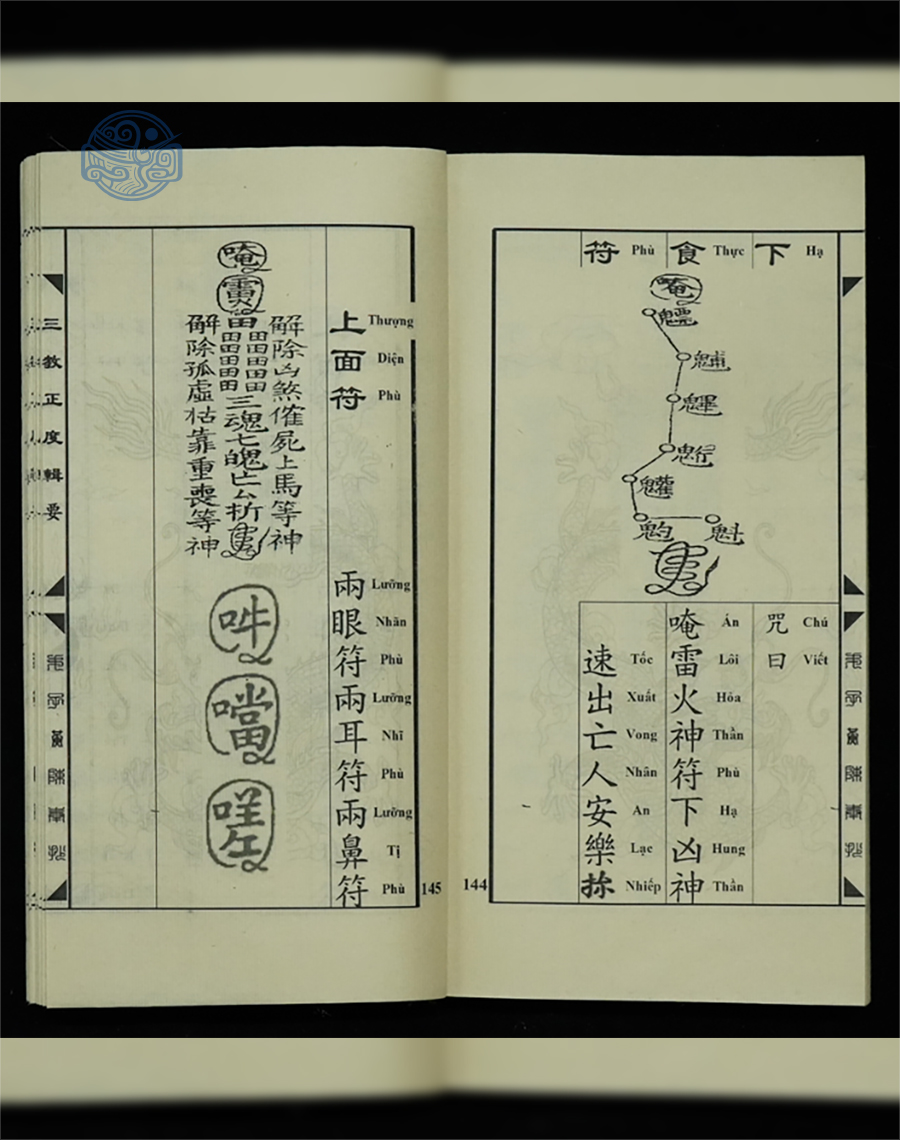 下 Hạ
食 Thực
符 Phù
唵
魁
咒 Chú
曰 Viết
唵 Án
雷 Lôi
火 Hỏa
神 Thần
符 Phù
下 Hạ
凶 Hung
神 Thần
速 Tốc
出 Xuất
亡 Vong
人 Nhân
安 An
樂 Lạc
Nhiếp
144
上 Thượng
面 Diện
符 Phù
兩 Lưỡng
眼 Nhãn
符 Phù
兩 Lưỡng
耳 Nhĩ
符 Phù
兩 Lưỡng
鼻 Tị
符 Phù
唵
解除凶煞催屍上馬等神
田田田田田田
田田田田田
三魂七魄亡厶析
解除孤虛枯靠重喪等神
吽
噹
145
三教正度輯要